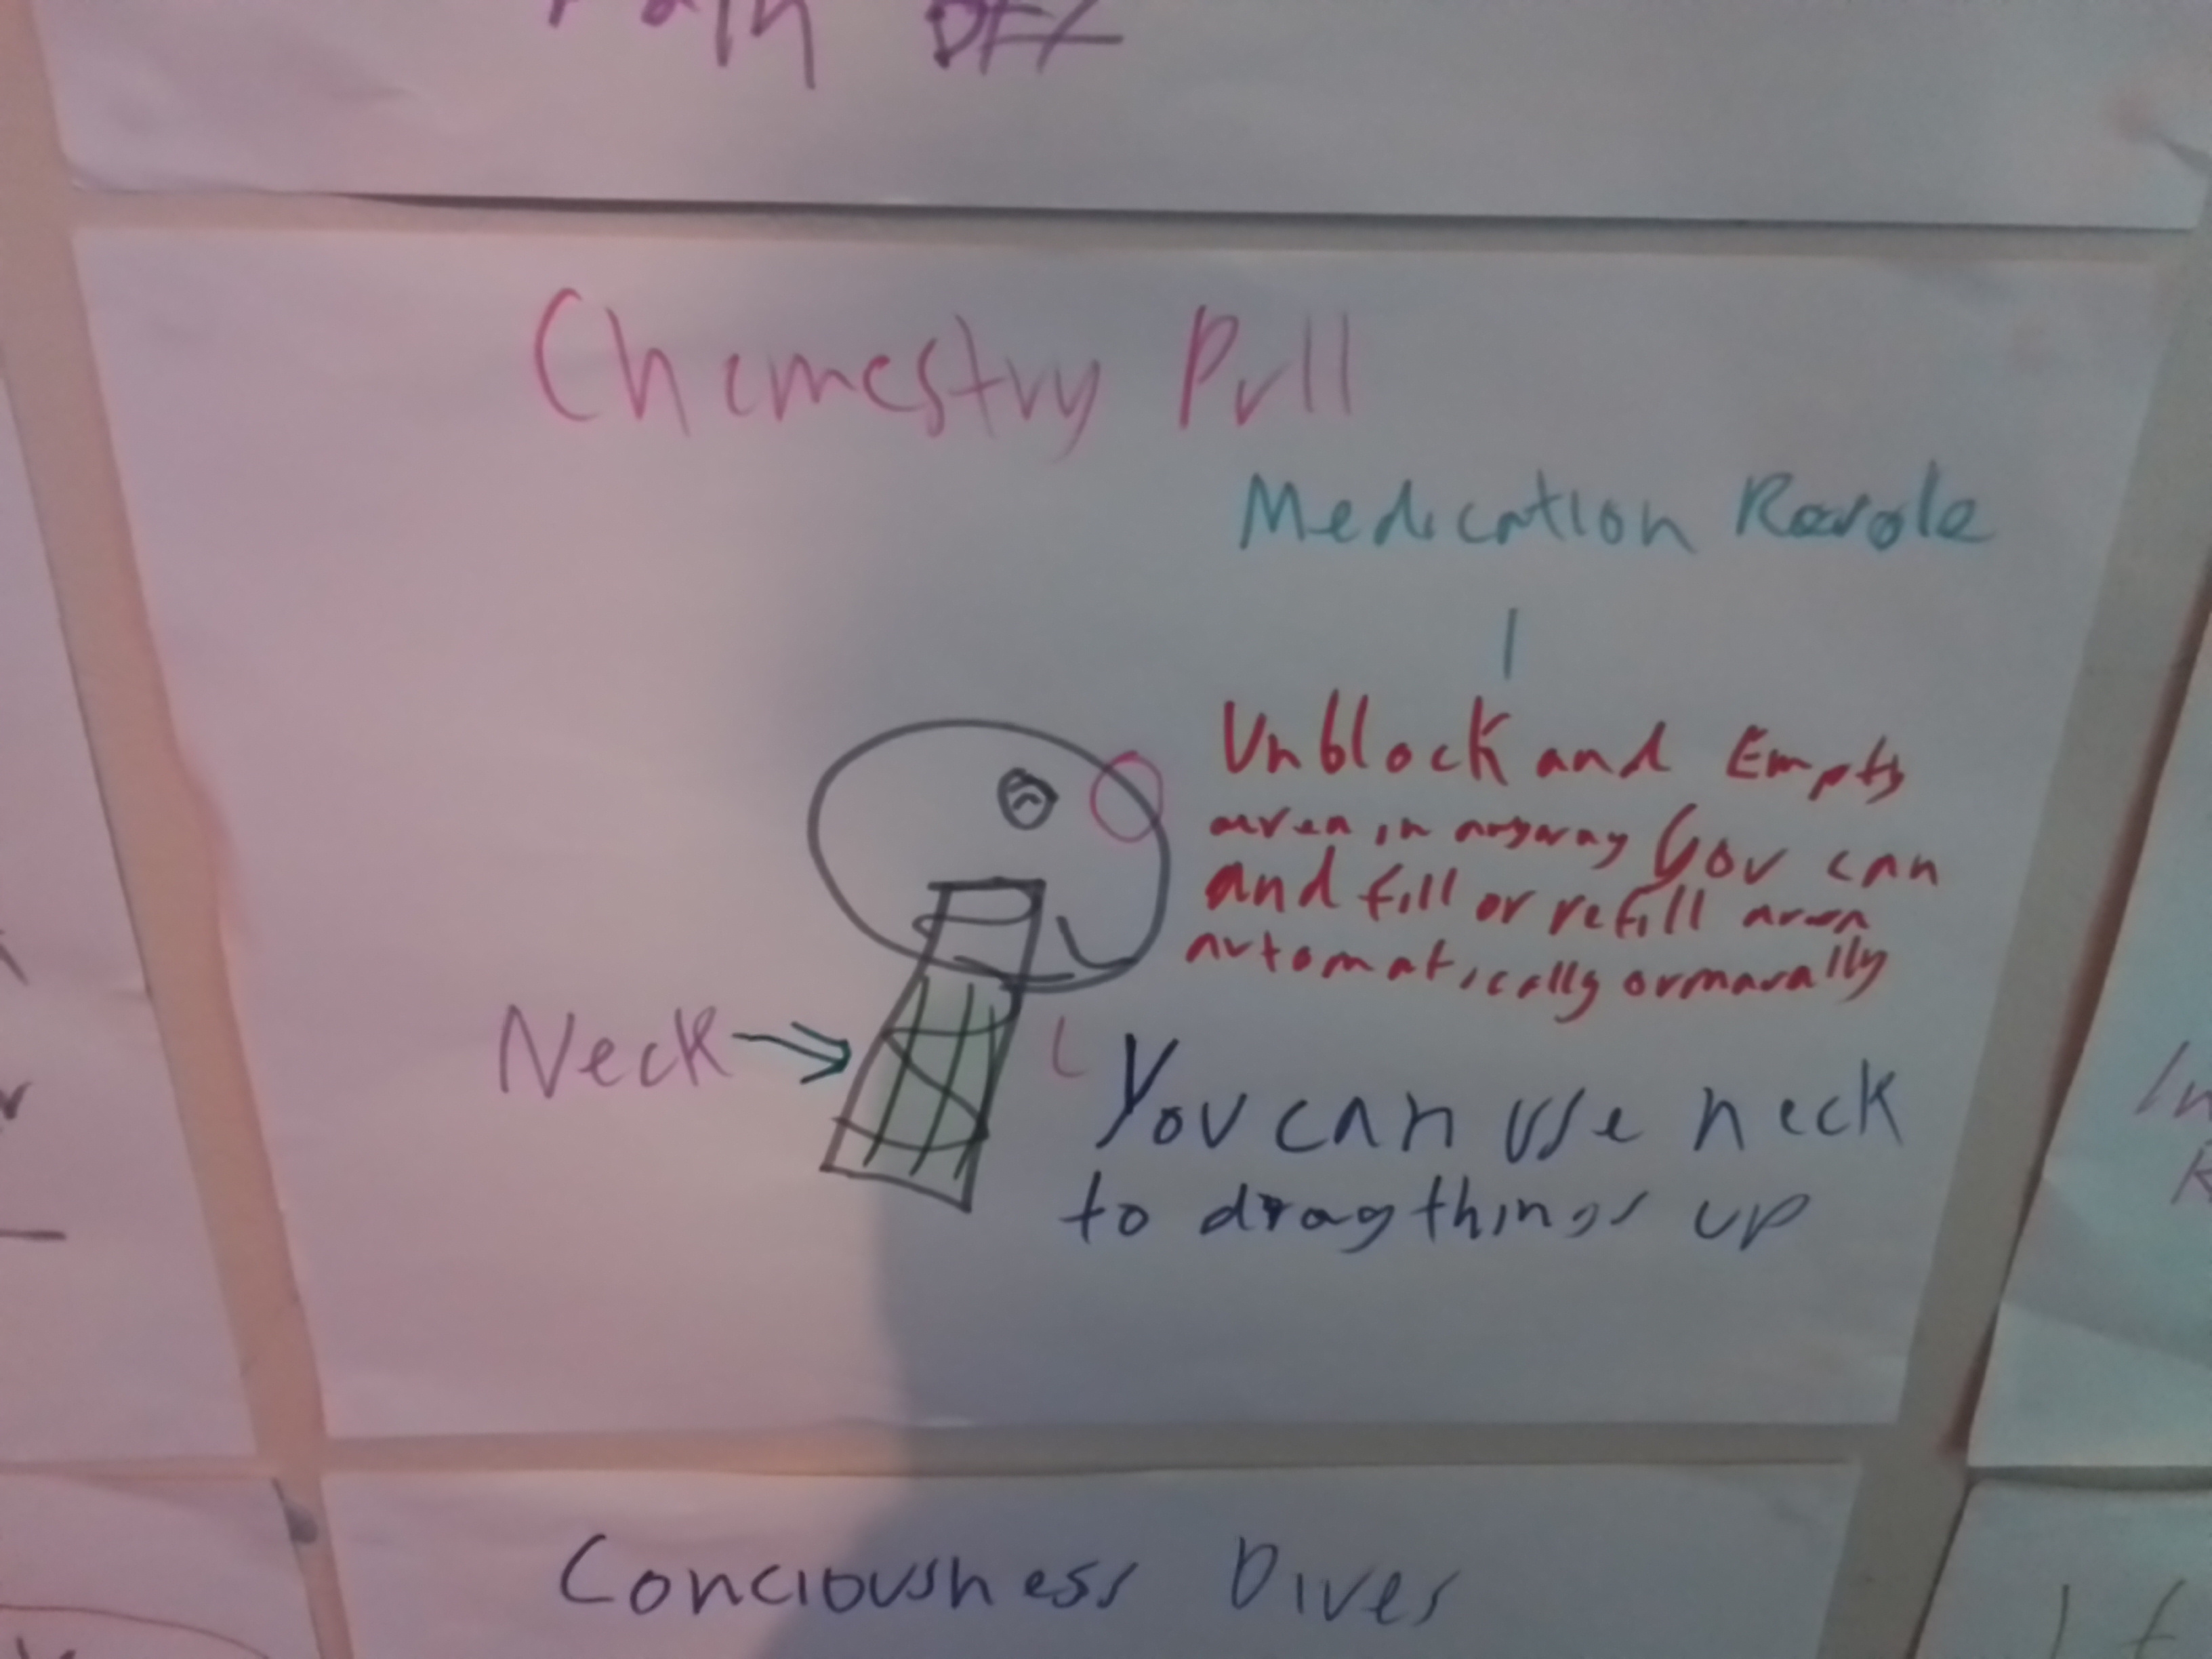 Chemestry Pull
Medication
Unblock and Empty
area in anyway you can
and fill or refill area
automatically or manually
Neck
You can use neck
to drag things up
Conciousness Dives
In